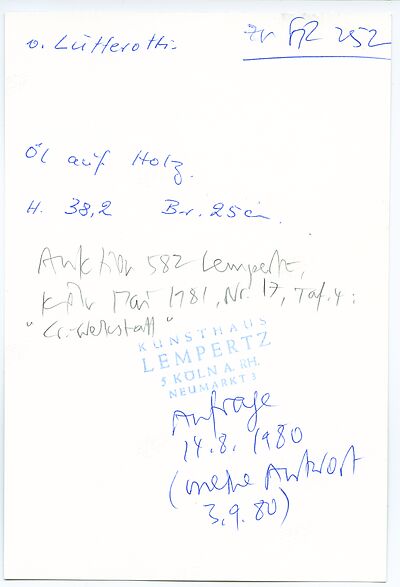 v. Lütterotti
zu FR 252
Öl auf Holz.
H. 38,2 Br. 25 cm.
Auktion 582 Lempertz,
Köln Mai 1981, Nr. 17, Taf. 4:
"Cr.-Werkstatt"
KUNSTHAUS
LEMPERTZ
5 KÖLN A. RH.
NEUMARKT 3
Anfrage
14.8.1980
(meine Antwort
3.9.80)